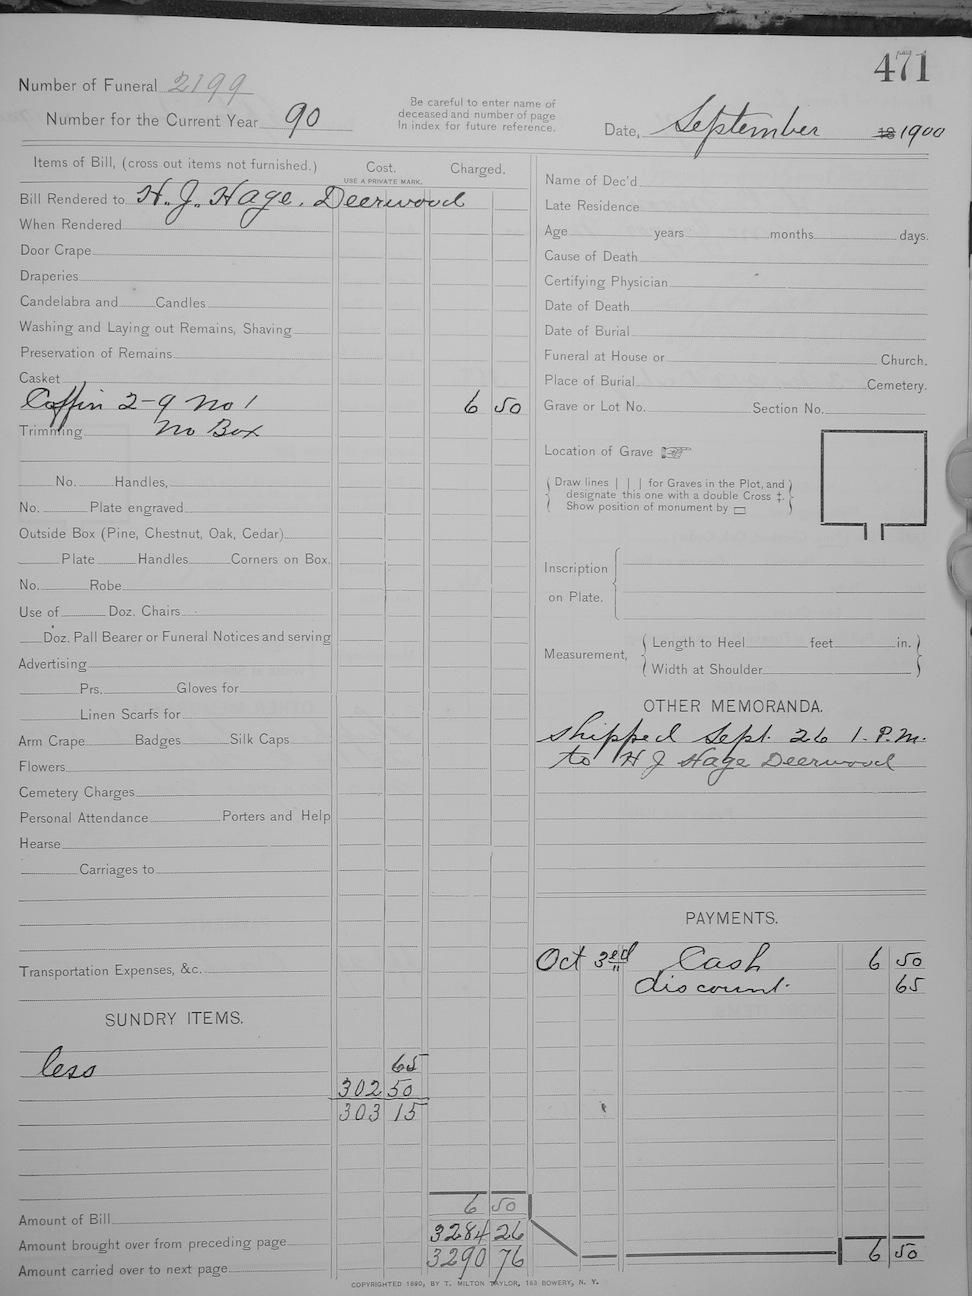 471
Number of Funeral 2199
Number for the Current Year 90
Be careful to enter name of
deceased and number of page
In index for future reference.
Date, September 18 1900
Items of Bill, (cross out items not furnished.) Cost. Charged.
USE A PRIVATE MARK.
Bill Rendered to H. J. Hage. Deerwood
When Rendered
Door Crape
Draperies
Candelabra and Candles
Washing and Laying out Remains, Shaving
Preservation of Remains
Casket
Coffin 2-9 No 1 6 50
Trimming No Box
No. Handles,
No. Plate engraved
Outside Box (Pine, Chestnut, Oak, Cedar)
Plate Handles Corners on Box.
No. Robe
Use of Doz. Chairs
Doz. Pall Bearer or Funeral Notices and serving
Advertising
Prs. Gloves for
Linen Scarfs for
Arm Crape Badges Silk Caps
Flowers
Cemetery Charges
Personal Attendance Porters and Help
Hearse
Carriages to
Transportation Expenses, &c.
SUNDRY ITEMS.
less 65
302 50
303 15
6 50
Amount of Bill
3284 26
Amount brought over from preceding page
3290 76
Amount carried over to next page
Name of Dec'd
Late Residence
Age years months days.
Cause of Death
Certifying Physician
Date of Death
Date of Burial
Funeral at House or Church.
Place of Burial Cemetery.
Grave or Lot No. Section No.
Location of Grave
Draw lines | | | for Graves in the Plot, and
designate this one with a double Cross ‡.
Show position of monument by
Inscription
on Plate.
Measurement, Length to Heel feet in.
Width at Shoulder
OTHER MEMORANDA.
Shipped Sept. 26 1. P.M.
to H J Hage Deerwood
PAYMENTS.
Oct 3ed Cash 6 50
discount. 65
6 50
COPYRIGHTED 1890, BY T. MILTON TAYLOR, 163 BOWERY, N. Y.